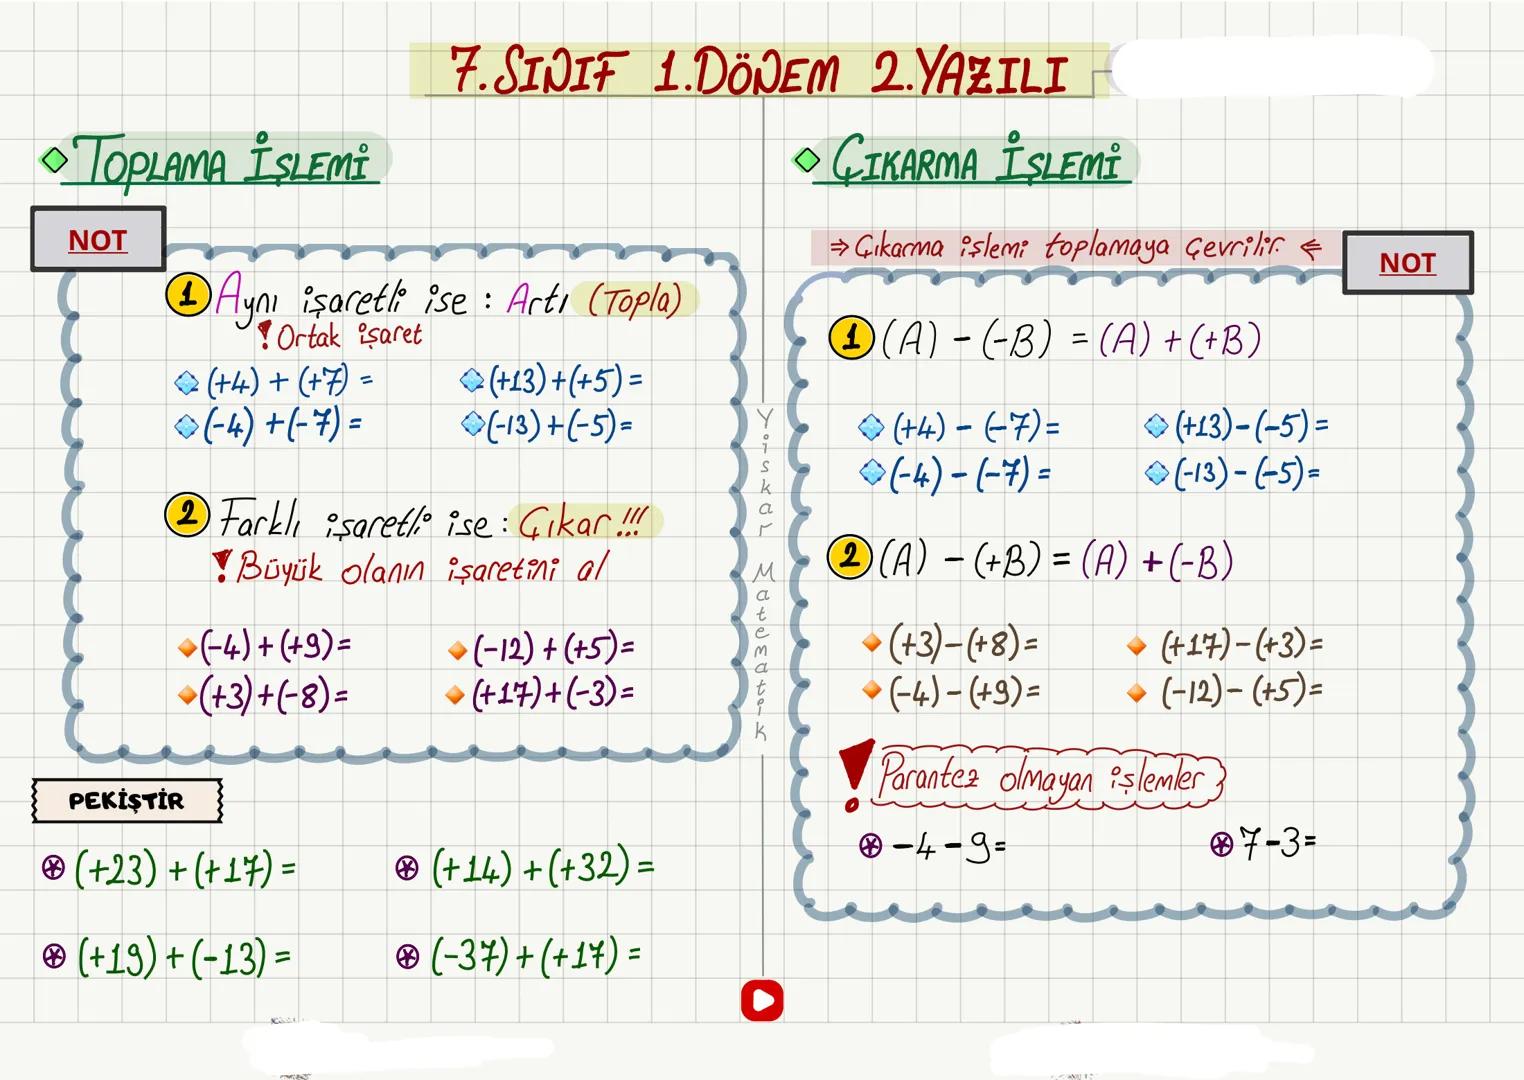 7.SINIF 1.DÖNEM 2.YAZILI
TOPLAMA İŞLEMİ
NOT
1 Aynı işaretli ise : Artı (Topla)
! Ortak işaret
(+4) + (+7) =
(+13)+(+5)=
(-4) +(-7)=
(-13)+(-5)=
2 Farklı işaretli ise : Çıkar !!!
! Büyük olanın işaretini al
(-4)+(+9)=
(-12)+(+5)=
(+3)+(-8)=
(+17)+(-3)=
PEKİŞTİR
(+23)+(+17)=
(+14)+(+32)=
(+19)+(-13)=
(-37)+(+17)=
Yiskar Matematik
ÇIKARMA İŞLEMİ
⇒ Çıkarma işlemi toplamaya çevrilir. ⇐
NOT
1 (A) - (-B) = (A) + (+B)
(+4) - (-7)=
(+13)-(-5)=
(-4) - (-7)=
(-13) - (-5)=
2 (A) - (+B) = (A) + (-B)
(+3)-(+8)=
(+17)-(+3)=
(-4)-(+9)=
(-12)-(+5)=
! Parantez olmayan işlemler
-4-9=
7-3=